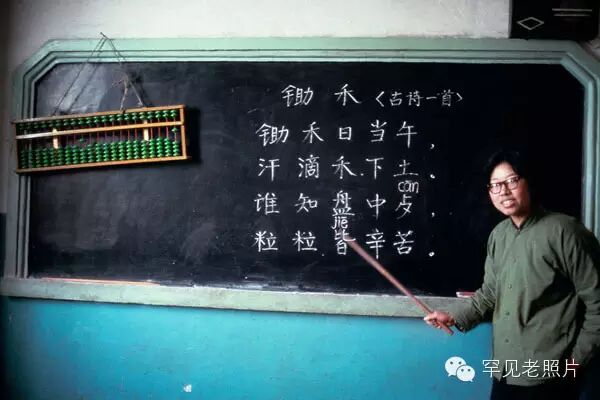 锄禾〈古诗一首〉
锄禾日当午，
汗滴禾下土。
cān
谁知盘中歺，
jiē
粒粒皆辛苦。
罕见老照片